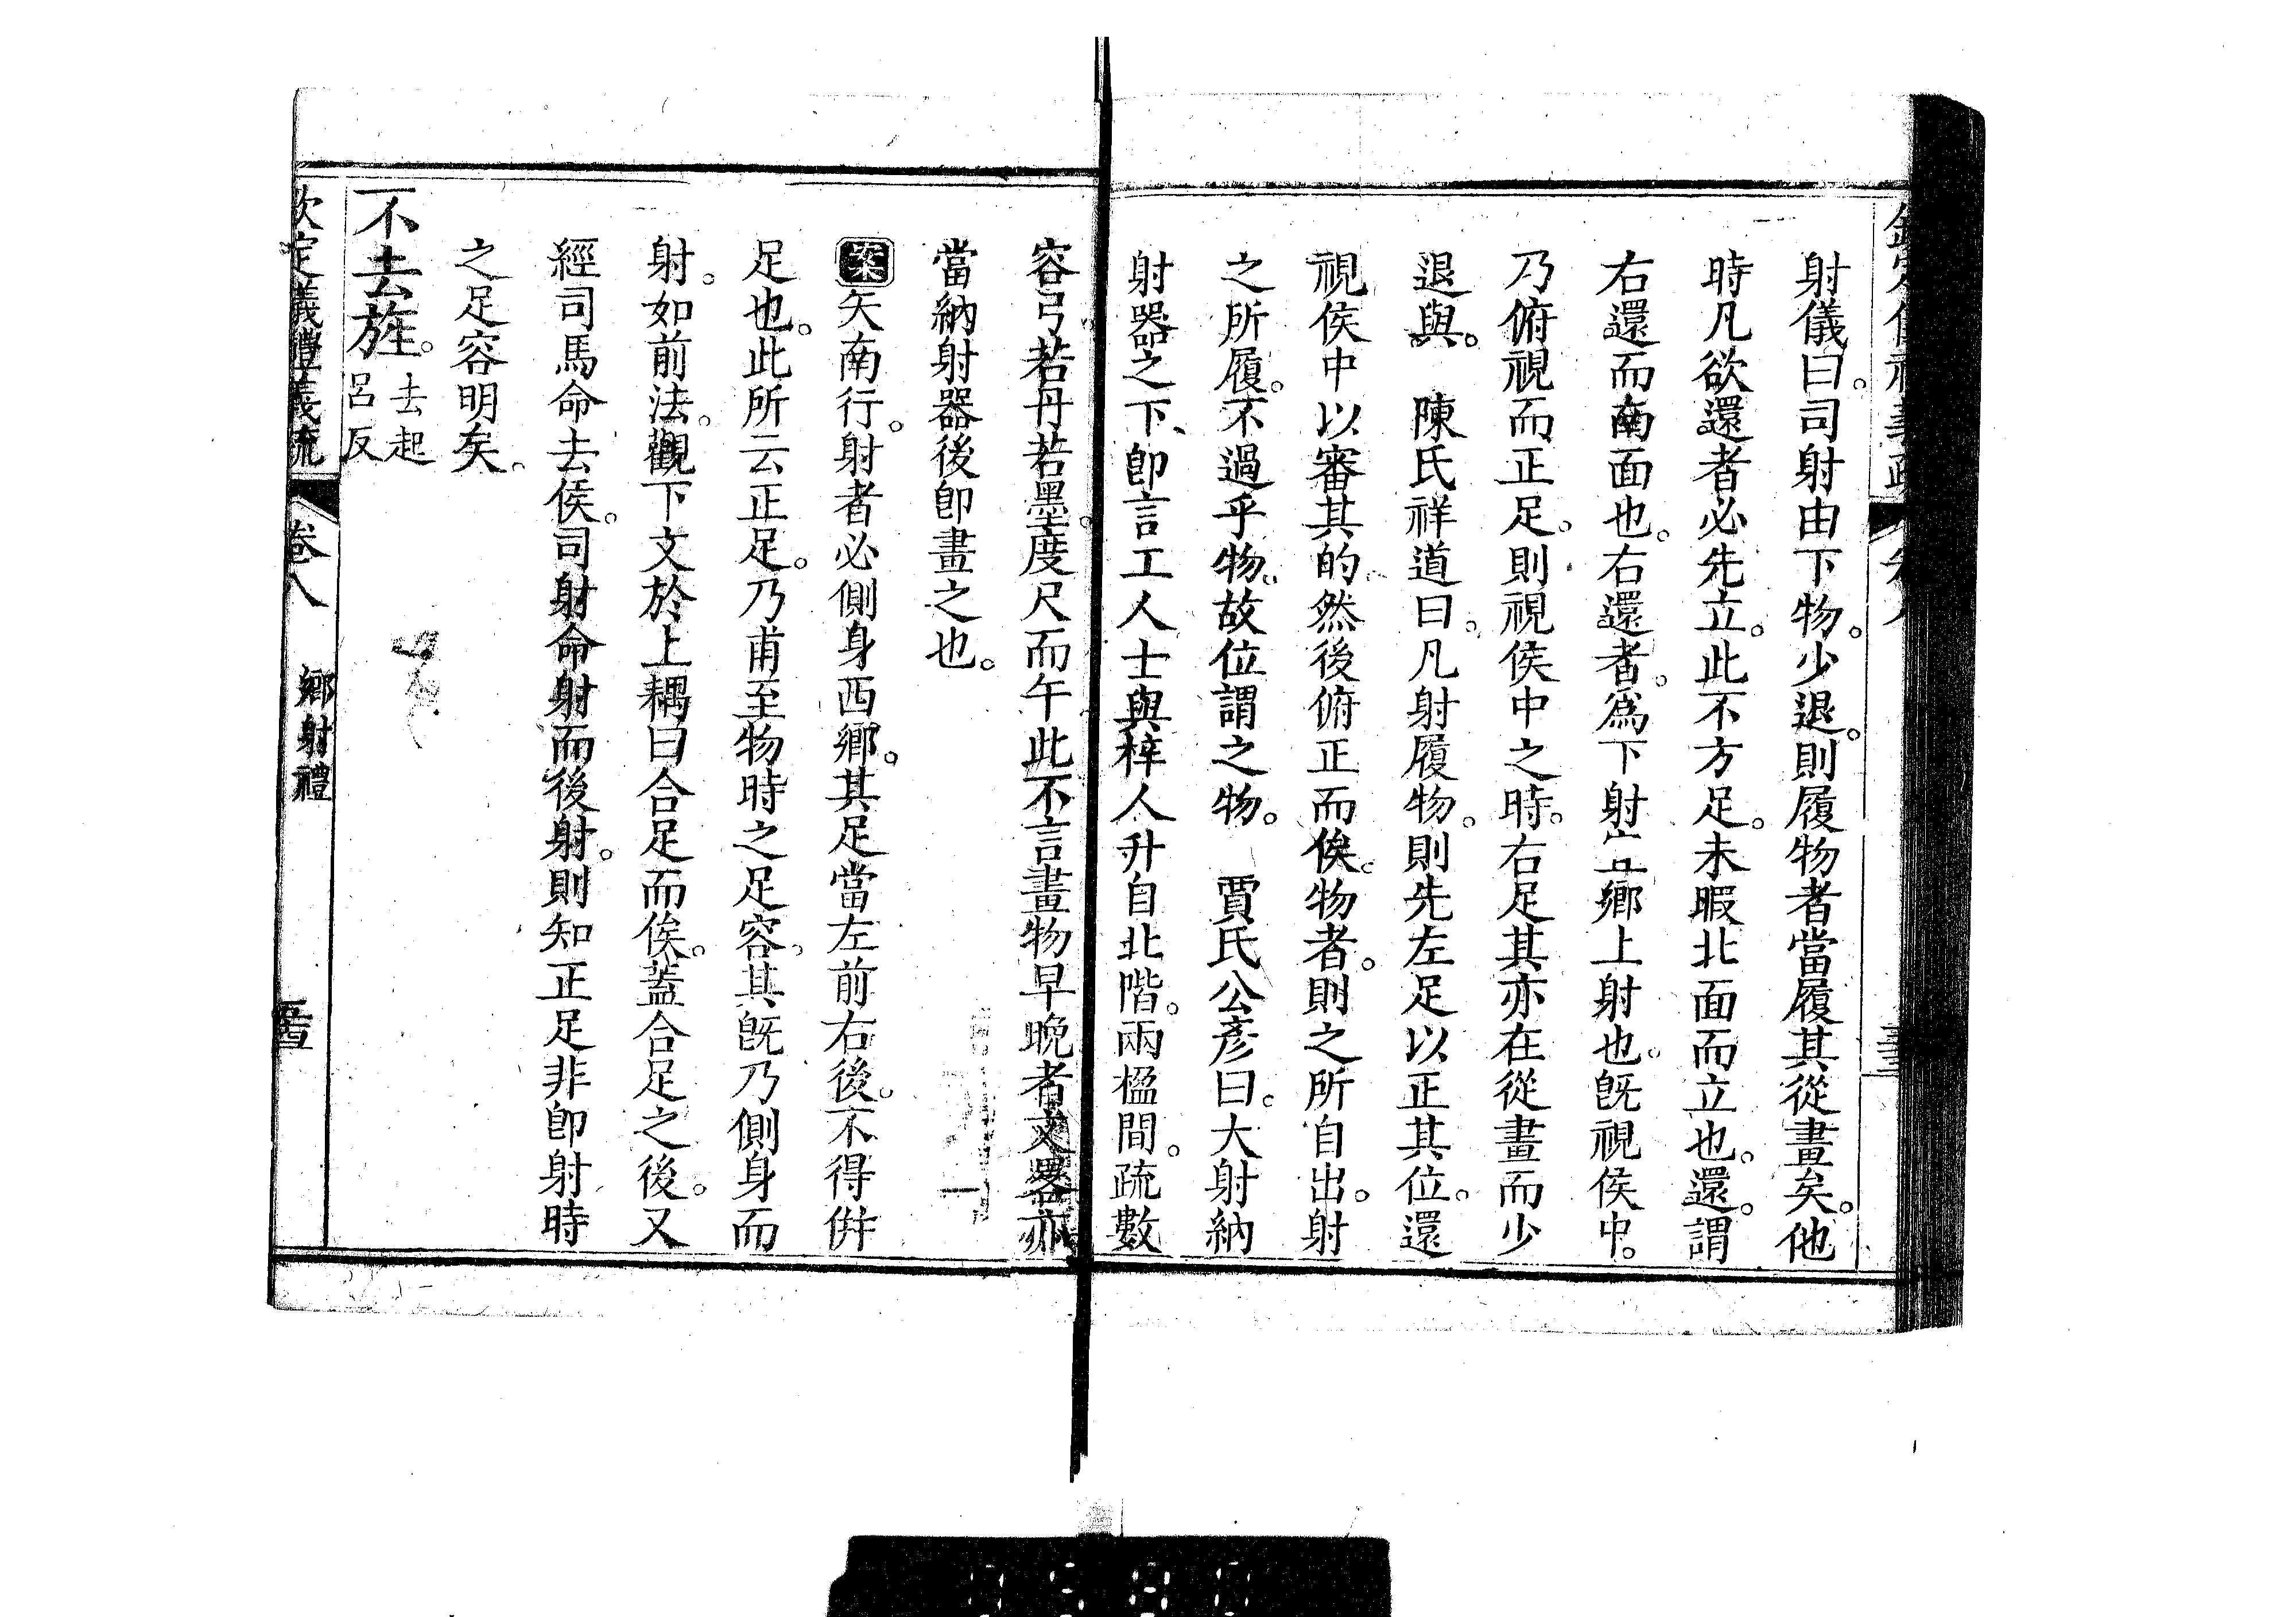 射儀曰。司射由下物。少退。則履物者當履其從畫矣。他
時凡欲還者必先立。此不方足。未暇北面而立也。還。謂
右還而南面也。右還者。爲下射鄉上射也。旣視侯中。
乃俯視而正足。則視侯中之時。右足其亦在從畫而少
退與。　陳氏祥道曰。凡射履物。則先左足以正其位。還
視侯中以審其的。然後俯正而俟。物者。則之所自出。射
之所履。不過乎物。故位謂之物。　賈氏公彥曰。大射納
射器之下、卽言工人士與梓人升自北階。兩楹間。疏數
容弓若丹若墨。度尺而午此不言畫物早晚者文畧亦
當納射器後卽畫之也。
案矢南行。射者必側身西鄉。其足當左前右後。不得併
足也。此所云正足。乃甫至物時之足容。其旣乃側身而
射。如前法。觀下文於上耦曰合足而俟。蓋合足之後。又
經司馬命去侯。司射命射而後射。則知正足非卽射時
之足容明矣。
不去旌。去起
呂反
欽定儀禮義疏　卷八　鄉射禮